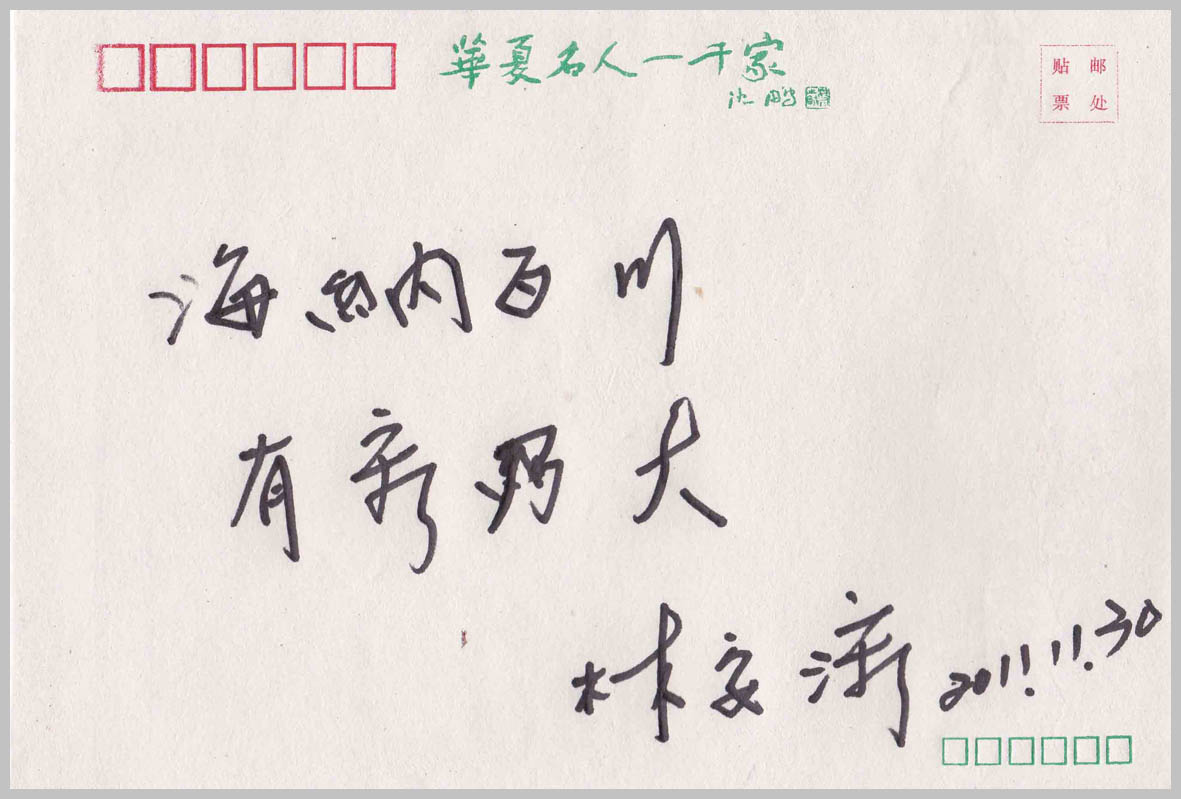 華夏名人一千家
沈鹏
贴 邮
票 处
海纳百川
有 大
林安 2011.11.30